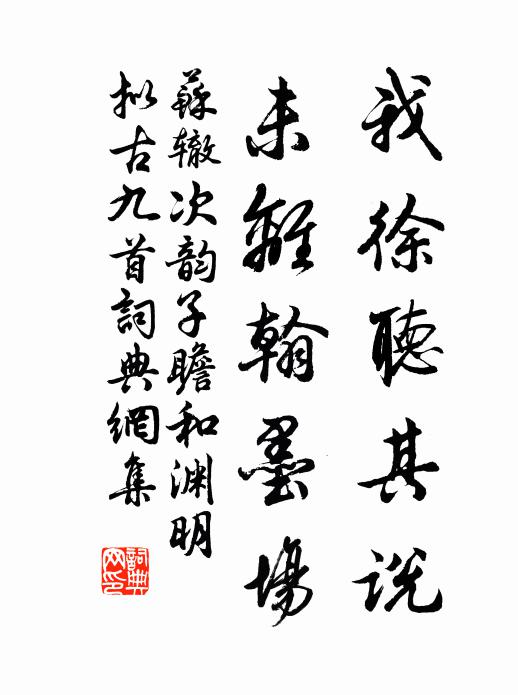 我徐聽其説
未離翰墨場
蘇辙次韵子瞻和渊明
拟古九首詞典網集
詞典网印